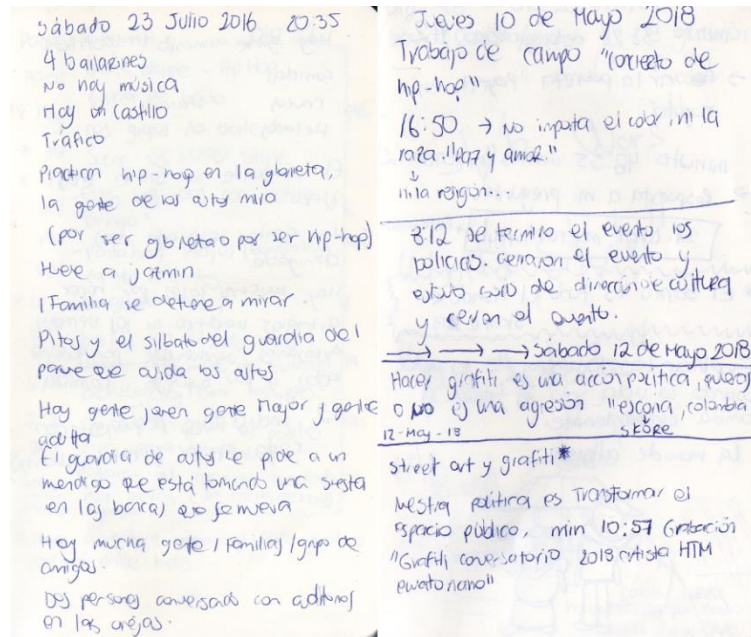 Sábado 23 Julio 2016 20:35
4 bailarines
No hay música
Hay un castillo
Tráfico
Practican hip-hop en la glorieta,
la gente de los autos mira
(por ser glorieta o por ser hip-hop)
Huele a jazmin.
1 Familia se detiene a mirar.
Pitos y el silbato del guardia del
parque que cuida los autos
Hay gente joven gente mayor y gente
adulta
El guardia de autos le pide a un
mendigo que está tomando una siesta
en las bancas que se mueva
Hay mucha gente / Familias / grupo de
amigos.
Dos personas conversando con audífonos
en las orejas.
Jueves 10 de Mayo 2018
Trabajo de campo "contexto de
hip-hop"
16:50 → No importa el color ni la
raza. "Paz y amor"
↓
ni la religión.
8:12 se termino el evento los
policias. cerraron el evento y
estuvo solo de dirección e cultura
y cerraron el evento.
→ → → Sábado 12 de Mayo 2018
Hacer grafiti es una acción política, quieras
o NO es una agresión colombia
12-May-18 skore
street art y grafiti*
nuestra política es Transformar el
espacio público, min 10:57 Grabación
"Grafiti conversatorio 2018 artista HTM
ecuatoriano"